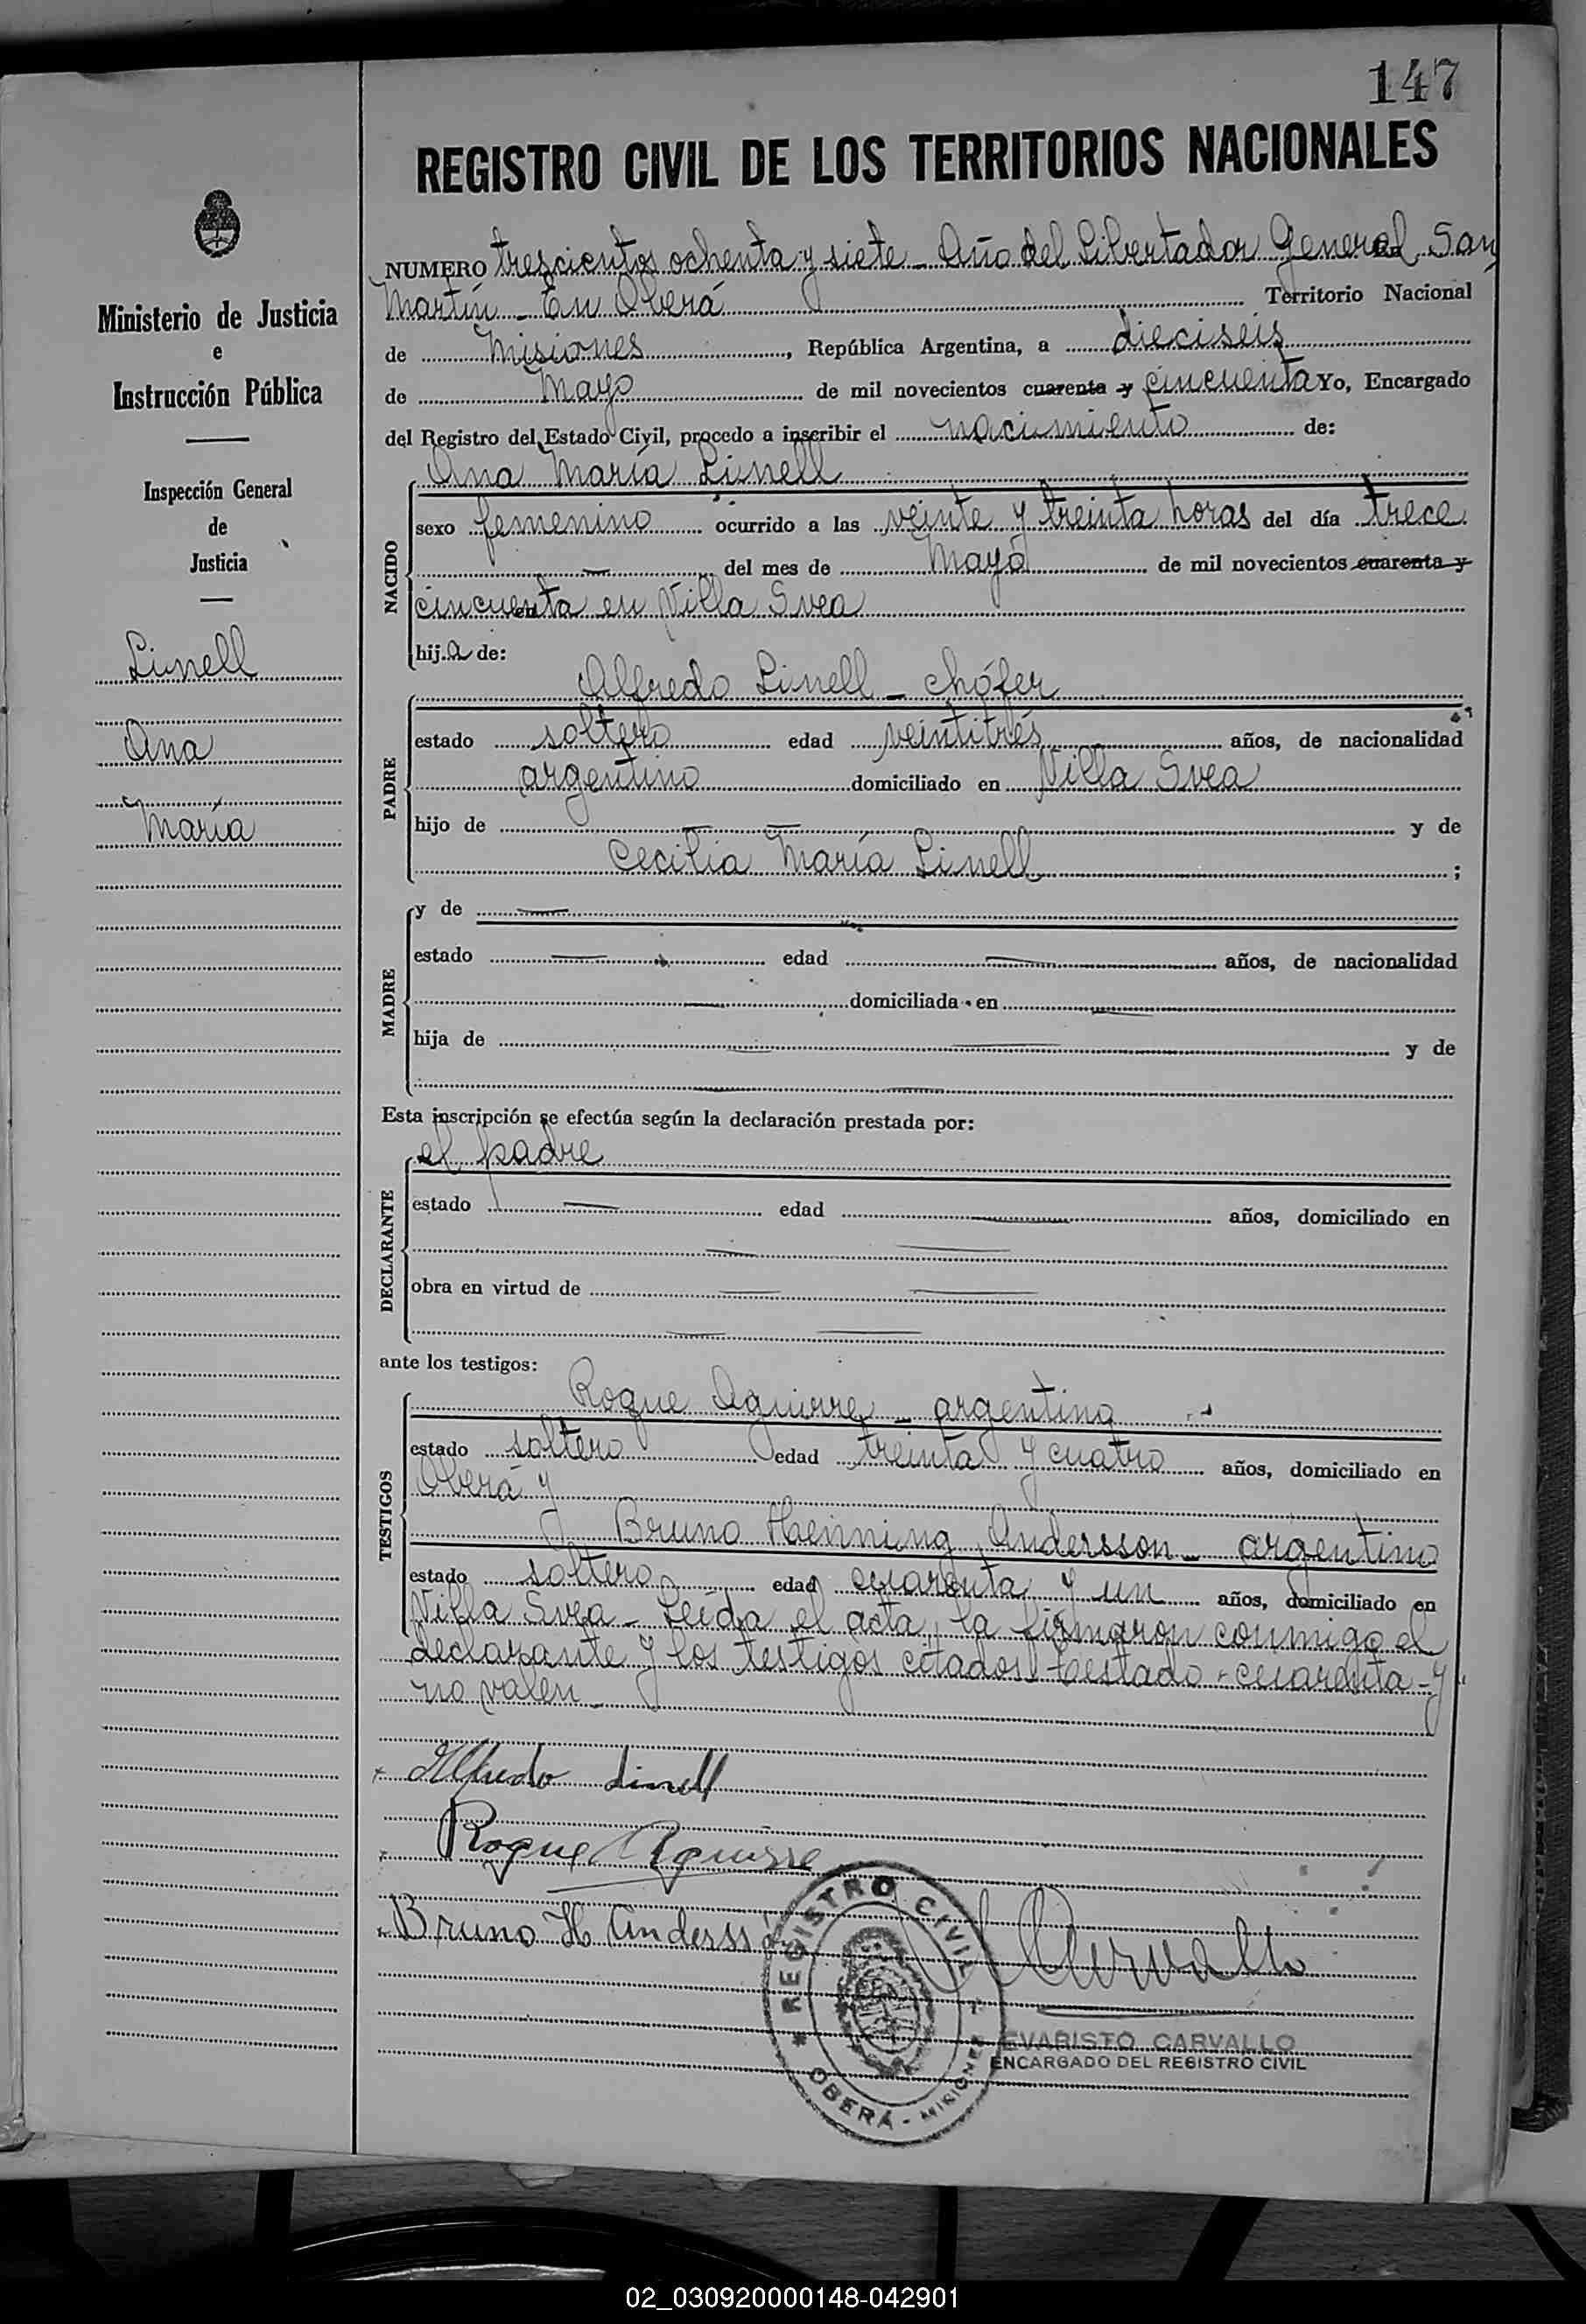 147
REGISTRO CIVIL DE LOS TERRITORIOS NACIONALES
NUMERO trescientos ochenta y siete - Año del Libertador General San
Martín - En Oberá Territorio Nacional
de Misiones, República Argentina, a dieciseis
de Mayo de mil novecientos cuarenta y cincuenta Yo, Encargado
del Registro del Estado Civil, procedo a inscribir el nacimiento de:
Ana María Linell
NACIDO
sexo femenino ocurrido a las veinte y treinta horas del día trece
— del mes de Mayo de mil novecientos cuarenta y
cincuenta en Villa Svea
hija de:
Alfredo Linell - chófer
PADRE
estado soltero edad veintitrés años, de nacionalidad
argentino domiciliado en Villa Svea
hijo de — — y de
Cecilia María Linell ;
MADRE
y de —
estado — edad — años, de nacionalidad
— domiciliada en —
hija de — — y de
— —
Esta inscripción se efectúa según la declaración prestada por:
el padre
DECLARANTE
estado — edad — años, domiciliado en
— —
obra en virtud de — —
— —
ante los testigos:
Roque Aguirre - argentino
TESTIGOS
estado soltero edad treinta y cuatro años, domiciliado en
Oberá y
Bruno Henning Andersson - argentino
estado soltero edad cuarenta y un años, domiciliado en
Villa Svea - Leída el acta, la firmaron conmigo el
declarante y los testigos citados. Testado - cuarenta - y
no valen -
Alfredo Linell
Roque Aguirre
Bruno H Anderss
Carvallo
REGISTRO CIVIL
OBERÁ - MISIONES
EVARISTO CARVALLO
ENCARGADO DEL REGISTRO CIVIL
Ministerio de Justicia
e
Instrucción Pública
Inspección General
de
Justicia
Linell
Ana
María
02_030920000148-042901